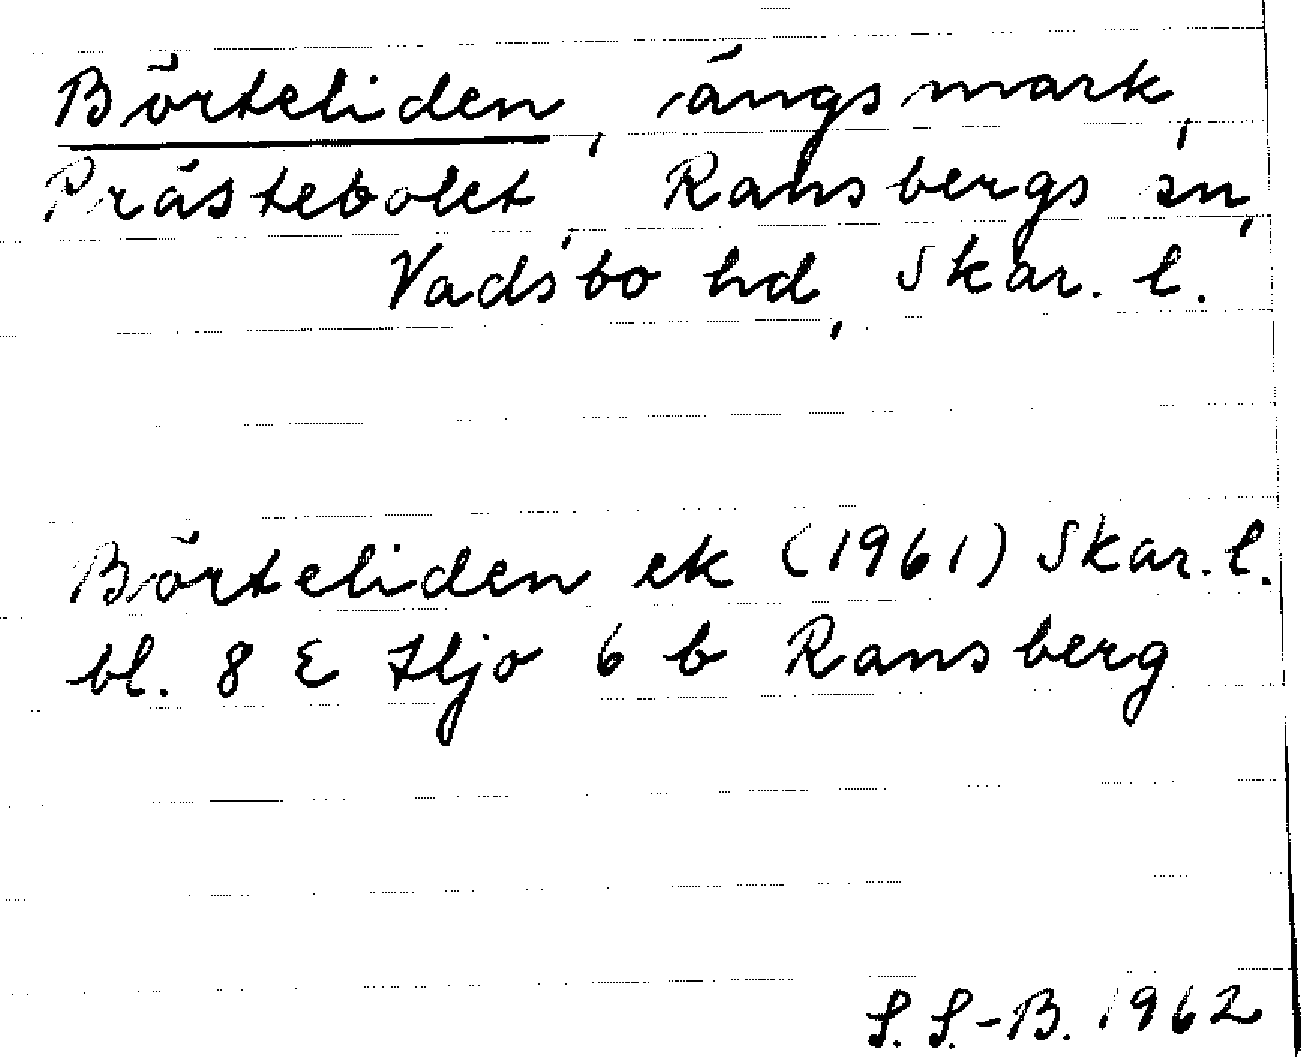 Börteliden, ängsmark,
Prästebolet, Ransbergs sn,
Vadsbo hd, Skar. l.
Börteliden ek (1961) Skar. l.
bl. 8 E Hjo 6 b Ransberg
S. S.-B. 1962